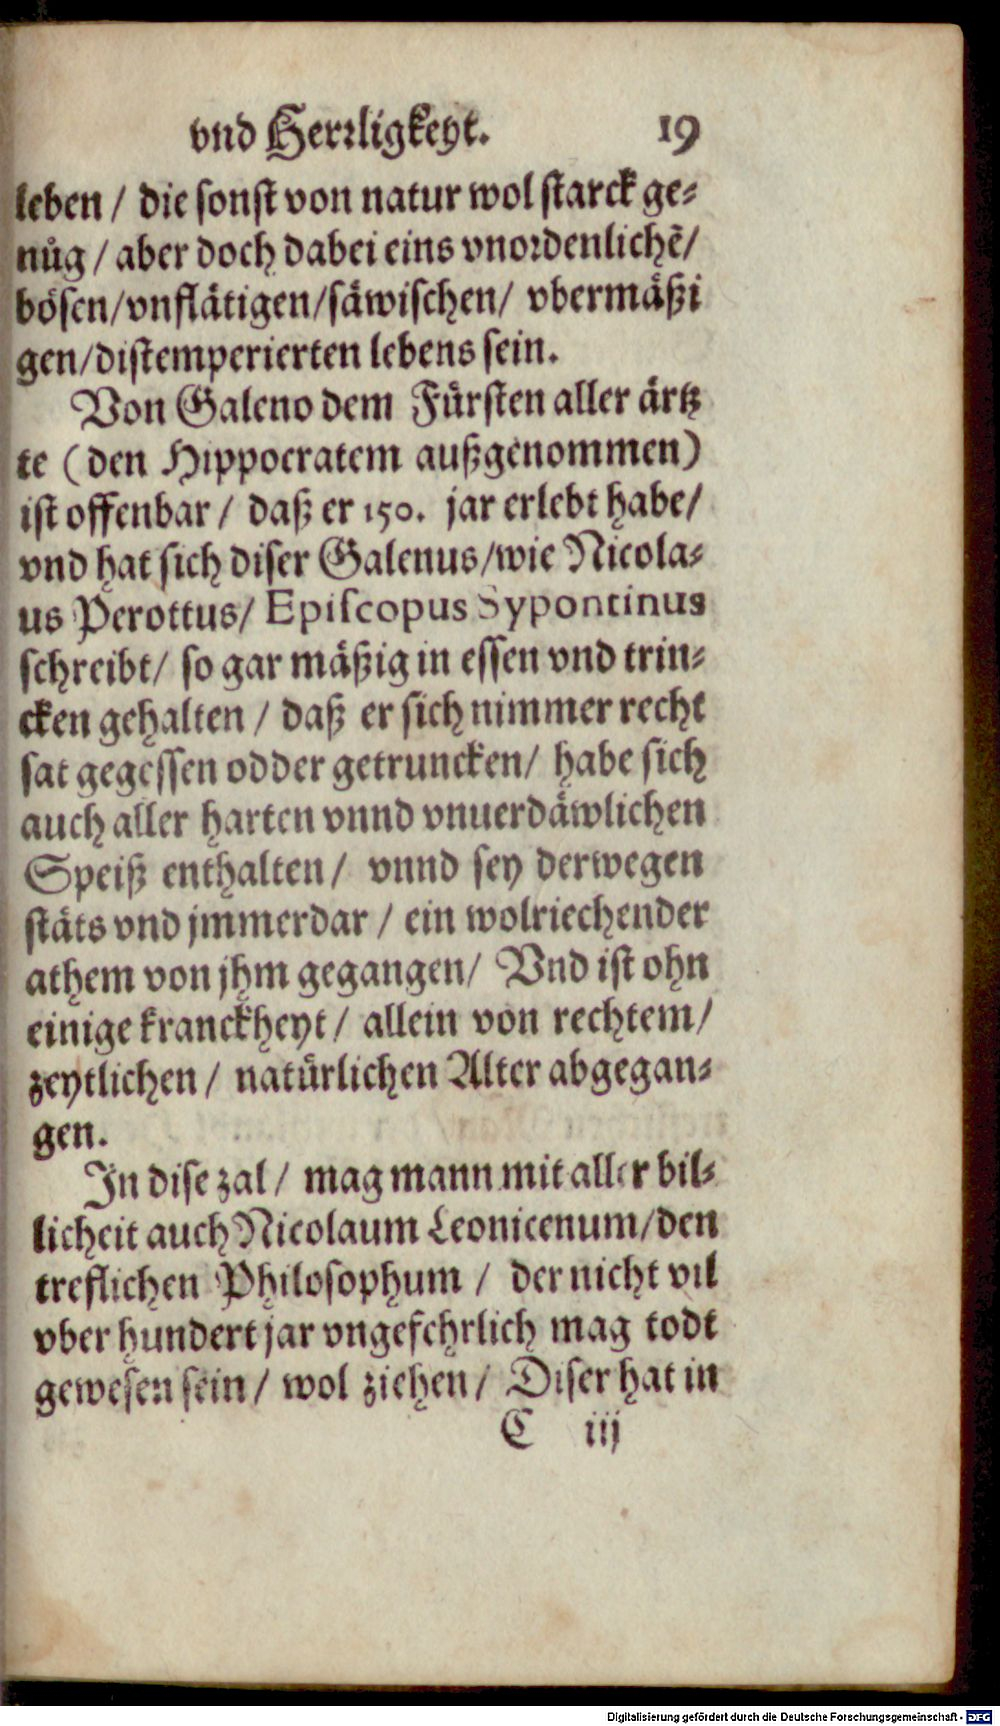 vnd Herrligkeyt. 19
leben / die sonst von natur wol starck ge-
nůg / aber doch dabei eins vnordenlichē/
bösen/vnflätigen/säwischen/ vbermäßi
gen/distemperierten lebens sein.
Von Galeno dem Fürsten aller ärtz
te (den Hippocratem außgenommen)
ist offenbar / daß er 150. jar erlebt habe/
vnd hat sich diser Galenus/wie Nicola-
us Perottus/ Episcopus Sypontinus
schreibt/ so gar mäßig in essen vnd trin-
cken gehalten / daß er sich nimmer recht
sat gegessen odder getruncken/ habe sich
auch aller harten vnnd vnuerdäwlichen
Speiß enthalten/ vnnd sey derwegen
stäts vnd jmmerdar / ein wolriechender
athem von jhm gegangen/ Vnd ist ohn
einige kranckheyt/ allein von rechtem/
zeytlichen/ natürlichen Alter abgegan-
gen.
In dise zal/ mag mann mit aller bil-
licheit auch Nicolaum Leonicenum/den
treflichen Philosophum / der nicht vil
vber hundert jar vngefehrlich mag todt
gewesen sein/ wol ziehen/ Diser hat in
C iij
Digitalisierung gefördert durch die Deutsche Forschungsgemeinschaft - DFG